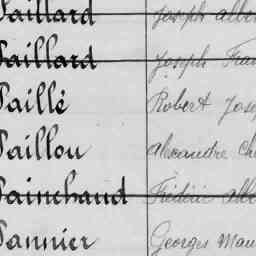 Paillard Joseph Albe
Paillard Joseph Fran
Paillé Robert Jose
Paillou Alexandre Ch
Painchaud Frédéric Albe
Pannier Georges Mau